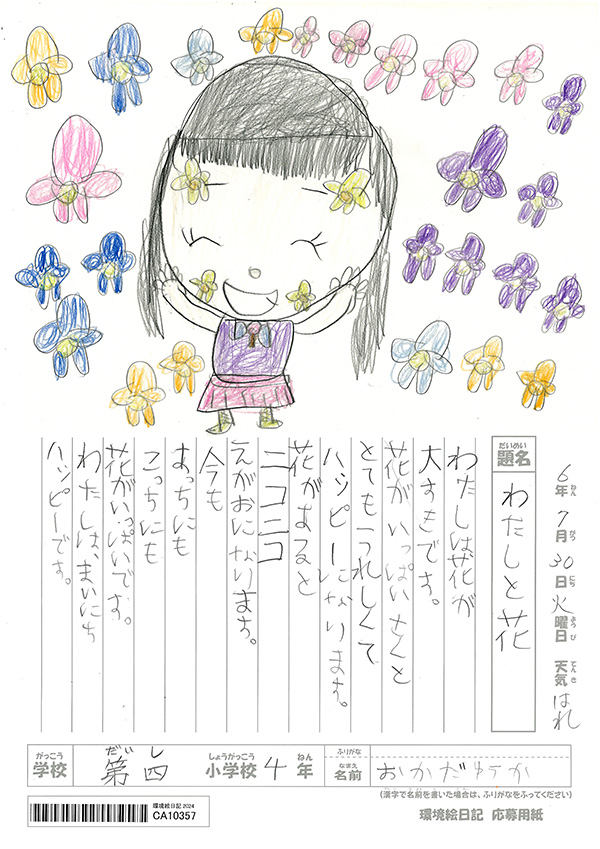 6年 7月 30日 火曜日 天気 はれ
ねん がつ にち ようび てんき
だいめい
題名
わたしと花
わたしは花が
大すきです。
花がいっぱいさくと
とてもうれしくて
ハッピーになります。
花があると
ニコニコ
えがおになります。
今も
あっちにも
こっちにも
花がいっぱいです。
わたしは、まいにち
ハッピーです。
がっこう だい し しょうがっこう ねん
学校 第四 小学校 4年
ふりがな
なまえ
名前 おかだゆうか
(漢字で名前を書いた場合は、ふりがなをふってください)
環境絵日記 2024
CA10357
環境絵日記 応募用紙